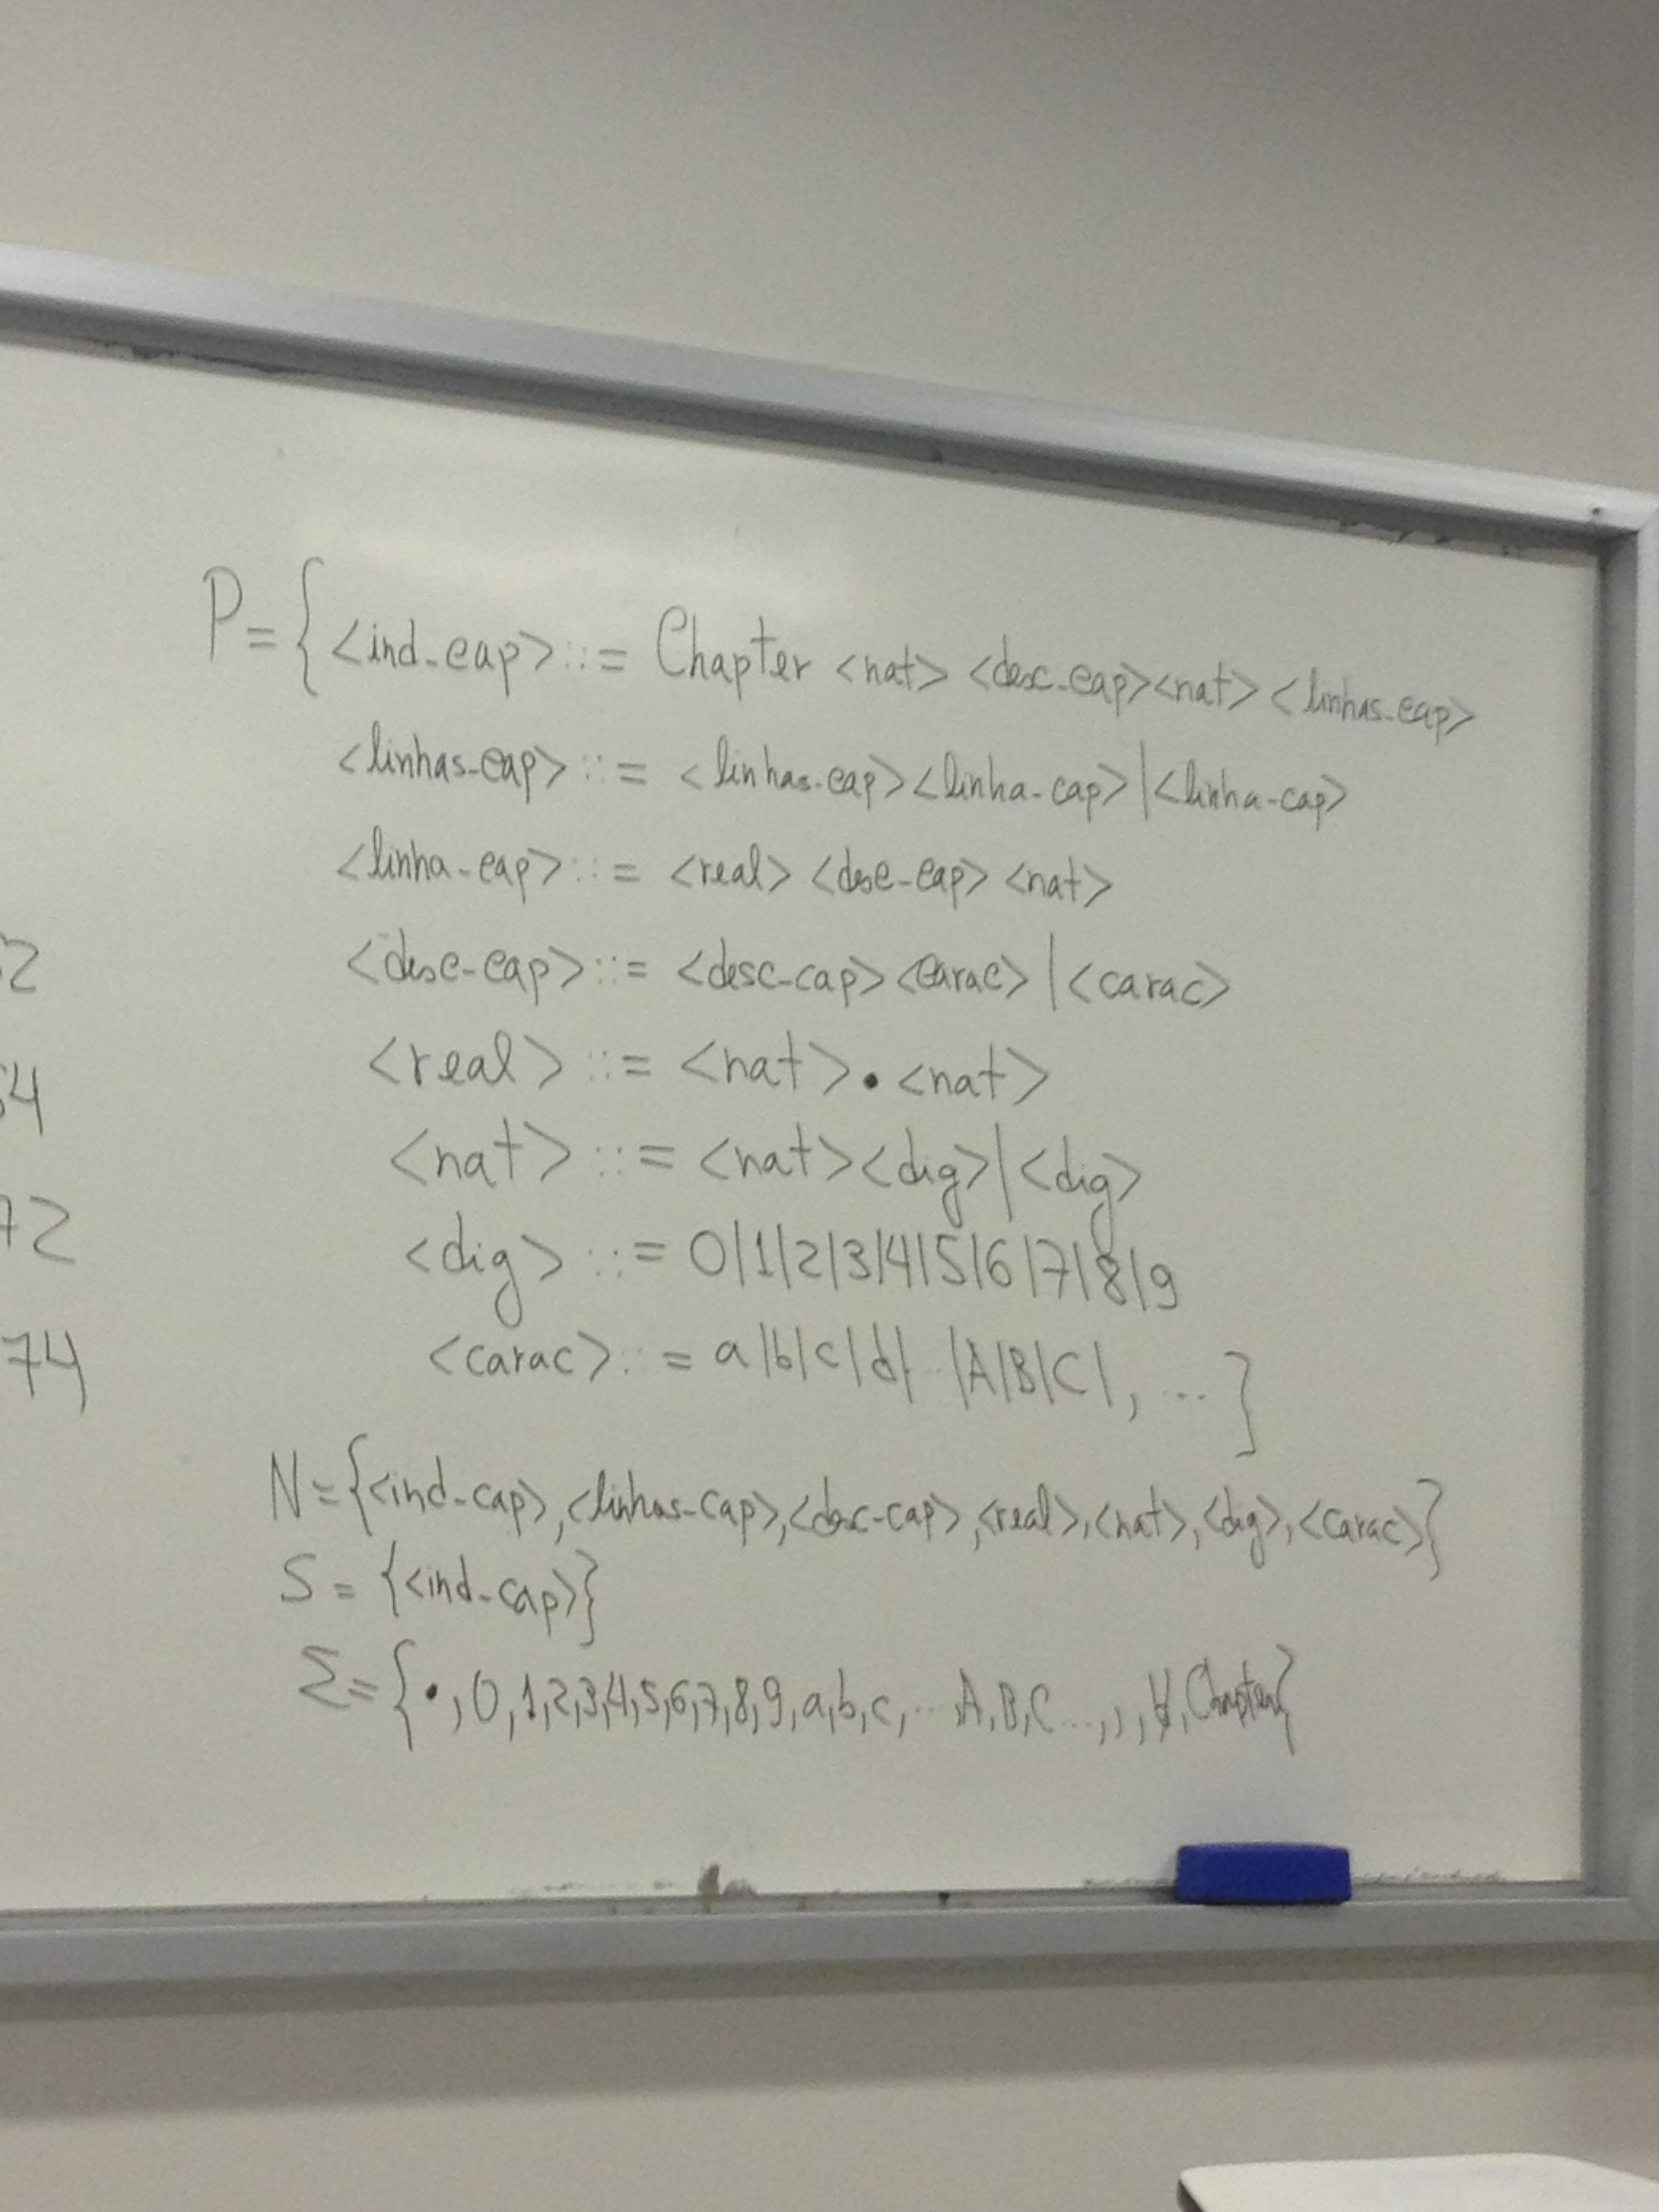 P = { <ind_cap> ::= Chapter <nat> <desc_cap><nat> <linhas_cap>
<linhas-cap> ::= <linhas-cap><linha-cap>|<linha-cap>
<linha-cap> ::= <real> <desc-cap> <nat>
52
<desc-cap> ::= <desc-cap><carac>|<carac>
<real> ::= <nat>.<nat>
54
<nat> ::= <nat><dig>|<dig>
72
<dig> ::= 0|1|2|3|4|5|6|7|8|9
74
<carac> ::= a|b|c|d| ... |A|B|C|, ... }
N={<ind-cap>,<linhas-cap>,<desc-cap>,<real>,<nat>,<dig>,<carac>}
S = {<ind-cap>}
Σ={•,0,1,2,3,4,5,6,7,8,9,a,b,c,...,A,B,C...,,,ƀ,Chapter}